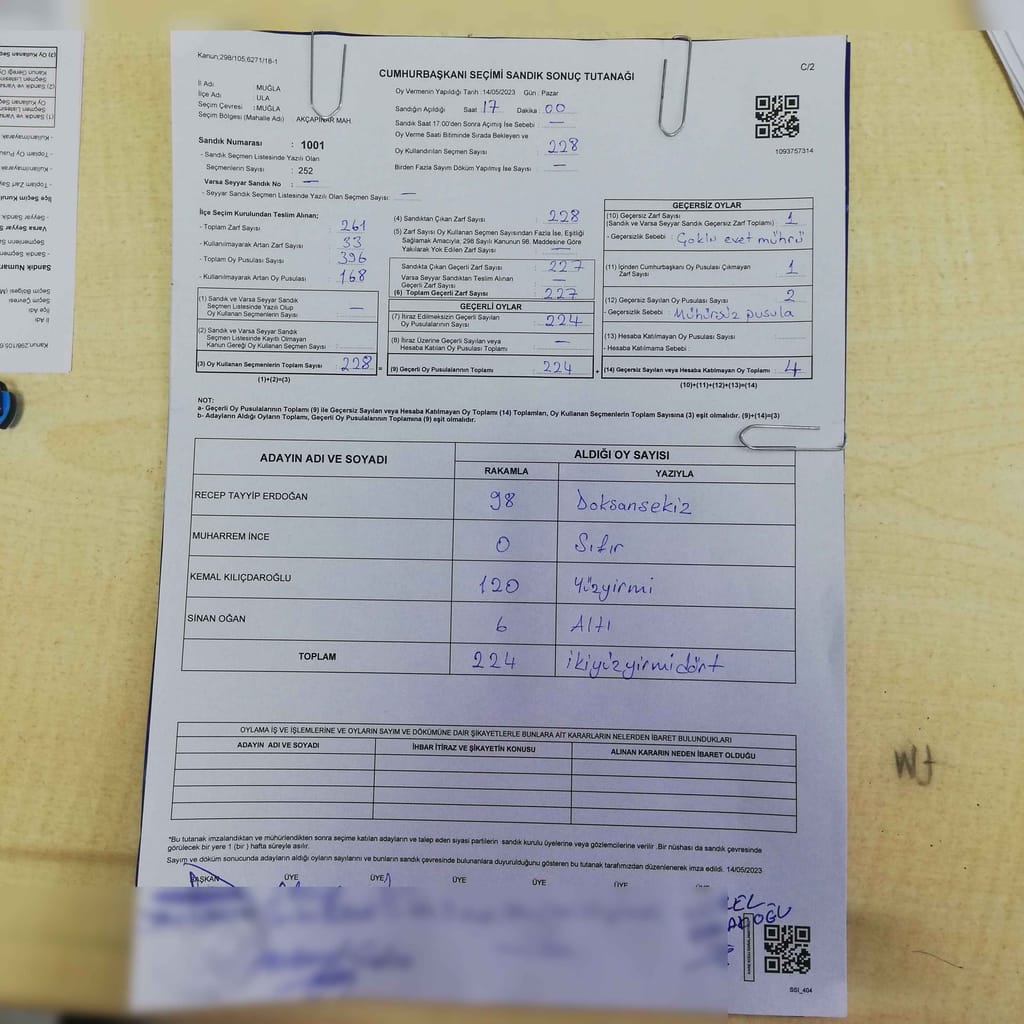 Kanun;298/105,6271/18-1
C/2
CUMHURBAŞKANI SEÇİMİ SANDIK SONUÇ TUTANAĞI
İl Adı : MUĞLA
İlçe Adı : ULA
Seçim Çevresi : MUĞLA
Seçim Bölgesi (Mahalle Adı) AKÇAPINAR MAH.
Sandık Numarası : 1001
- Sandık Seçmen Listesinde Yazılı Olan
Seçmenlerin Sayısı : 252
Varsa Seyyar Sandık No : —
- Seyyar Sandık Seçmen Listesinde Yazılı Olan Seçmen Sayısı: —
Oy Vermenin Yapıldığı Tarih :14/05/2023 Gün : Pazar
Sandığın Açıldığı Saat 17 Dakika : 00
Sandık Saat 17.00'den Sonra Açılmış İse Sebebi : —
Oy Verme Saati Bitiminde Sırada Bekleyen ve
Oy Kullandırılan Seçmen Sayısı : 228
Birden Fazla Sayım Döküm Yapılmış İse Sayısı : —
1093757314
İlçe Seçim Kurulundan Teslim Alınan;
- Toplam Zarf Sayısı : 261
- Kullanılmayarak Artan Zarf Sayısı : 33
- Toplam Oy Pusulası Sayısı : 396
- Kullanılmayarak Artan Oy Pusulası : 168
(1) Sandık ve Varsa Seyyar Sandık
Seçmen Listesinde Yazılı Olup
Oy Kullanan Seçmenlerin Sayısı : —
(2) Sandık ve Varsa Seyyar Sandık
Seçmen Listesinde Kayıtlı Olmayan
Kanun Gereği Oy Kullanan Seçmen Sayısı :
(3) Oy Kullanan Seçmenlerin Toplam Sayısı : 228 =
(1)+(2)=(3)
(4) Sandıktan Çıkan Zarf Sayısı : 228
(5) Zarf Sayısı Oy Kullanan Seçmen Sayısından Fazla İse, Eşitliği
Sağlamak Amacıyla, 298 Sayılı Kanunun 98. Maddesine Göre
Yakılarak Yok Edilen Zarf Sayısı : —
Sandıkta Çıkan Geçerli Zarf Sayısı : 227
Varsa Seyyar Sandıktan Teslim Alınan
Geçerli Zarf Sayısı : —
(6) Toplam Geçerli Zarf Sayısı : 227
GEÇERLİ OYLAR
(7) İtiraz Edilmeksizin Geçerli Sayılan
Oy Pusulalarının Sayısı : 224
(8) İtiraz Üzerine Geçerli Sayılan veya
Hesaba Katılan Oy Pusulası Toplamı : —
(9) Geçerli Oy Pusulalarının Toplamı : 224 +
GEÇERSİZ OYLAR
(10) Geçersiz Zarf Sayısı
(Sandık ve Varsa Seyyar Sandık Geçersiz Zarf Toplamı) : 1
- Geçersizlik Sebebi : Çoklu evet mührü
(11) İçinden Cumhurbaşkanı Oy Pusulası Çıkmayan
Zarf Sayısı : 1
(12) Geçersiz Sayılan Oy Pusulası Sayısı : 2
- Geçersizlik Sebebi : Mühürsüz pusula
(13) Hesaba Katılmayan Oy Pusulası Sayısı :
- Hesaba Katılmama Sebebi :
(14) Geçersiz Sayılan veya Hesaba Katılmayan Oy Toplamı : 4
(10)+(11)+(12)+(13)=(14)
NOT:
a- Geçerli Oy Pusulalarının Toplamı (9) ile Geçersiz Sayılan veya Hesaba Katılmayan Oy Toplamı (14) Toplamları, Oy Kullanan Seçmenlerin Toplam Sayısına (3) eşit olmalıdır. (9)+(14)=(3)
b- Adayların Aldığı Oyların Toplamı, Geçerli Oy Pusulalarının Toplamına (9) eşit olmalıdır.
ADAYIN ADI VE SOYADI ALDIĞI OY SAYISI
RAKAMLA YAZIYLA
RECEP TAYYİP ERDOĞAN 98 Doksansekiz
MUHARREM İNCE 0 Sıfır
KEMAL KILIÇDAROĞLU 120 Yüzyirmi
SİNAN OĞAN 6 Altı
TOPLAM 224 ikiyüzyirmidört
OYLAMA İŞ VE İŞLEMLERİNE VE OYLARIN SAYIM VE DÖKÜMÜNE DAİR ŞİKAYETLERLE BUNLARA AİT KARARLARIN NELERDEN İBARET BULUNDUKLARI
ADAYIN ADI VE SOYADI İHBAR İTİRAZ VE ŞİKAYETİN KONUSU ALINAN KARARIN NEDEN İBARET OLDUĞU
*Bu tutanak imzalandıktan ve mühürlendikten sonra seçime katılan adayların ve talep eden siyasi partilerin sandık kurulu üyelerine veya gözlemcilerine verilir .Bir nüshası da sandık çevresinde
görülecek bir yere 1 (bir ) hafta süreyle asılır.
Sayım ve döküm sonucunda adayların aldığı oyların sayılarını ve bunların sandık çevresinde bulunanlara duyurulduğunu gösteren bu tutanak tarafımızdan düzenlenerek imza edildi. 14/05/2023
BAŞKAN ÜYE ÜYE ÜYE ÜYE ÜYE
SSI_404